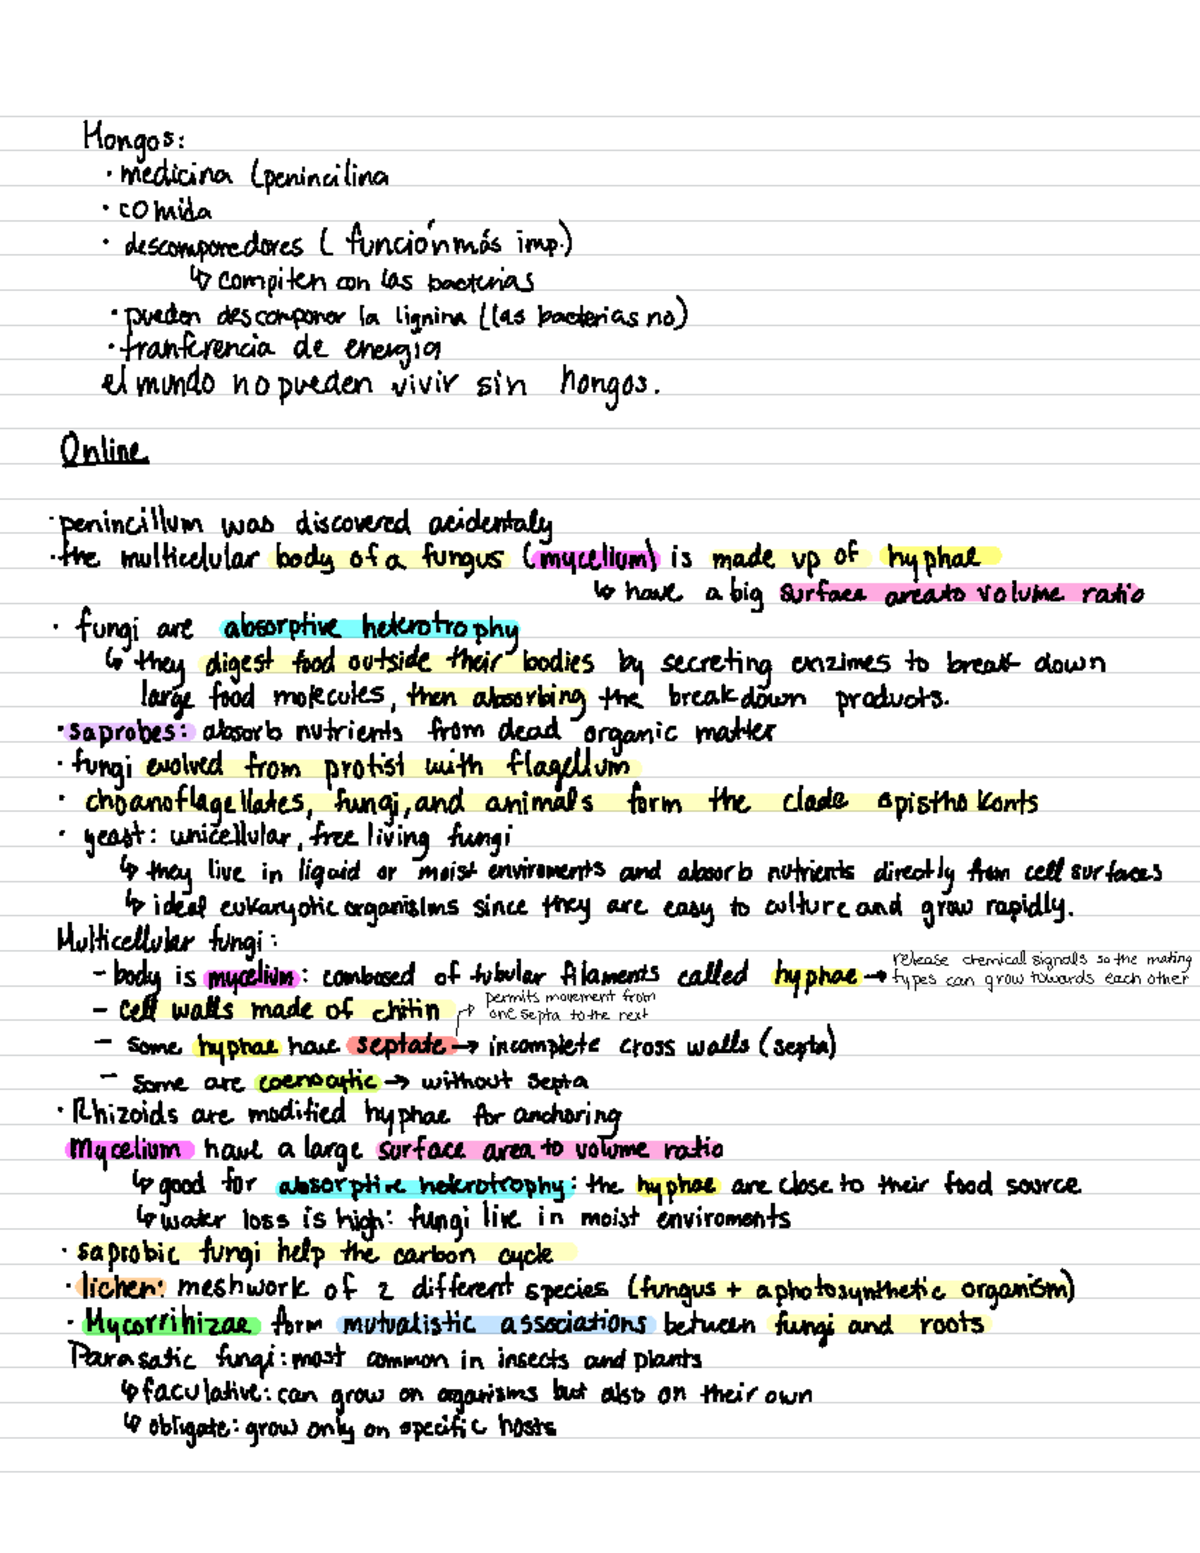 Hongos:
· medicina (penincilina
· comida
· descomponedores ( función más imp.)
↳ compiten con las bacterias
· pueden descomponer la lignina ((las bacterias no)
· tranferencia de energia
el mundo no pueden vivir sin hongos.
Online
· penincillum was discovered acidentaly
· the multicelular body of a fungus (mycelium) is made up of hyphae
↳ have a big surface area to volume ratio
· fungi are absorptive heterotrophy
↳ they digest food outside their bodies by secreting enzimes to break down
large food molecules, then absorbing the breakdown products.
· saprobes: absorb nutrients from dead organic matter
· fungi evolved from protist with flagellum
· choanoflagellates, fungi, and animals form the clade opisthokonts
· yeast: unicellular, free living fungi
↳ they live in liquid or moist enviroments and absorb nutrients directly from cell surfaces
↳ ideal eukaryotic organisims since they are easy to culture and grow rapidly.
Multicellular fungi:
- body is mycelium: combosed of tubular filaments called hyphae → release chemical signalls so the mating
types can grow towards each other
- cell walls made of chitin
permits movement from
one septa to the next
- some hyphae have septate → incomplete cross walls (septa)
- some are coenocytic → without septa
· Rhizoids are modified hyphae for anchoring
Mycelium have a large surface area to volume ratio
↳ good for absorptive heterotrophy: the hyphae are close to their food source
↳ water loss is high: fungi live in moist enviroments
· saprobic fungi help the carbon cycle
· lichen: meshwork of 2 different species (fungus + a photosynthetic organism)
· Mycorrihizae form mutualistic associations between fungi and roots
Parasatic fungi: most common in insects and plants
↳ faculative: can grow on oganisms but also on their own
↳ obligate: grow only on specific hosts